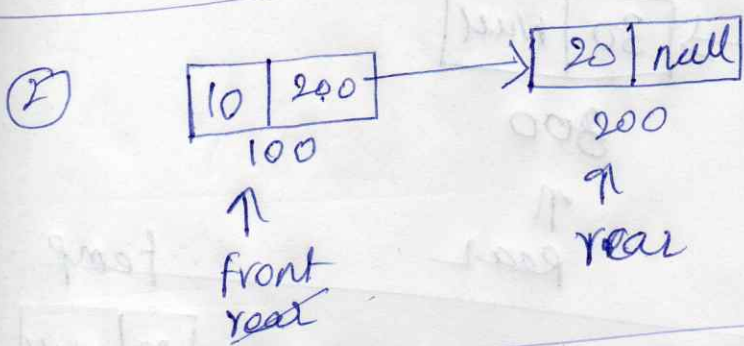 2
10 | 200 → 20 | null
100 200
front rear
rear